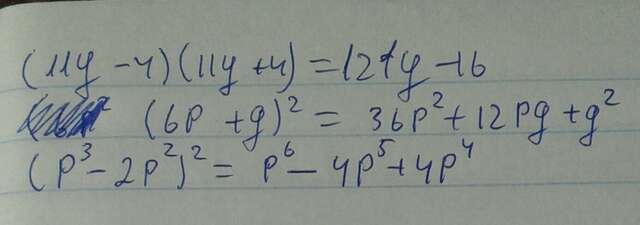 (11y - 4)(11y + 4) = 121y - 16
(6p + g)² = 36p² + 12pg + g²
(p³ - 2p²)² = p⁶ - 4p⁵ + 4p⁴